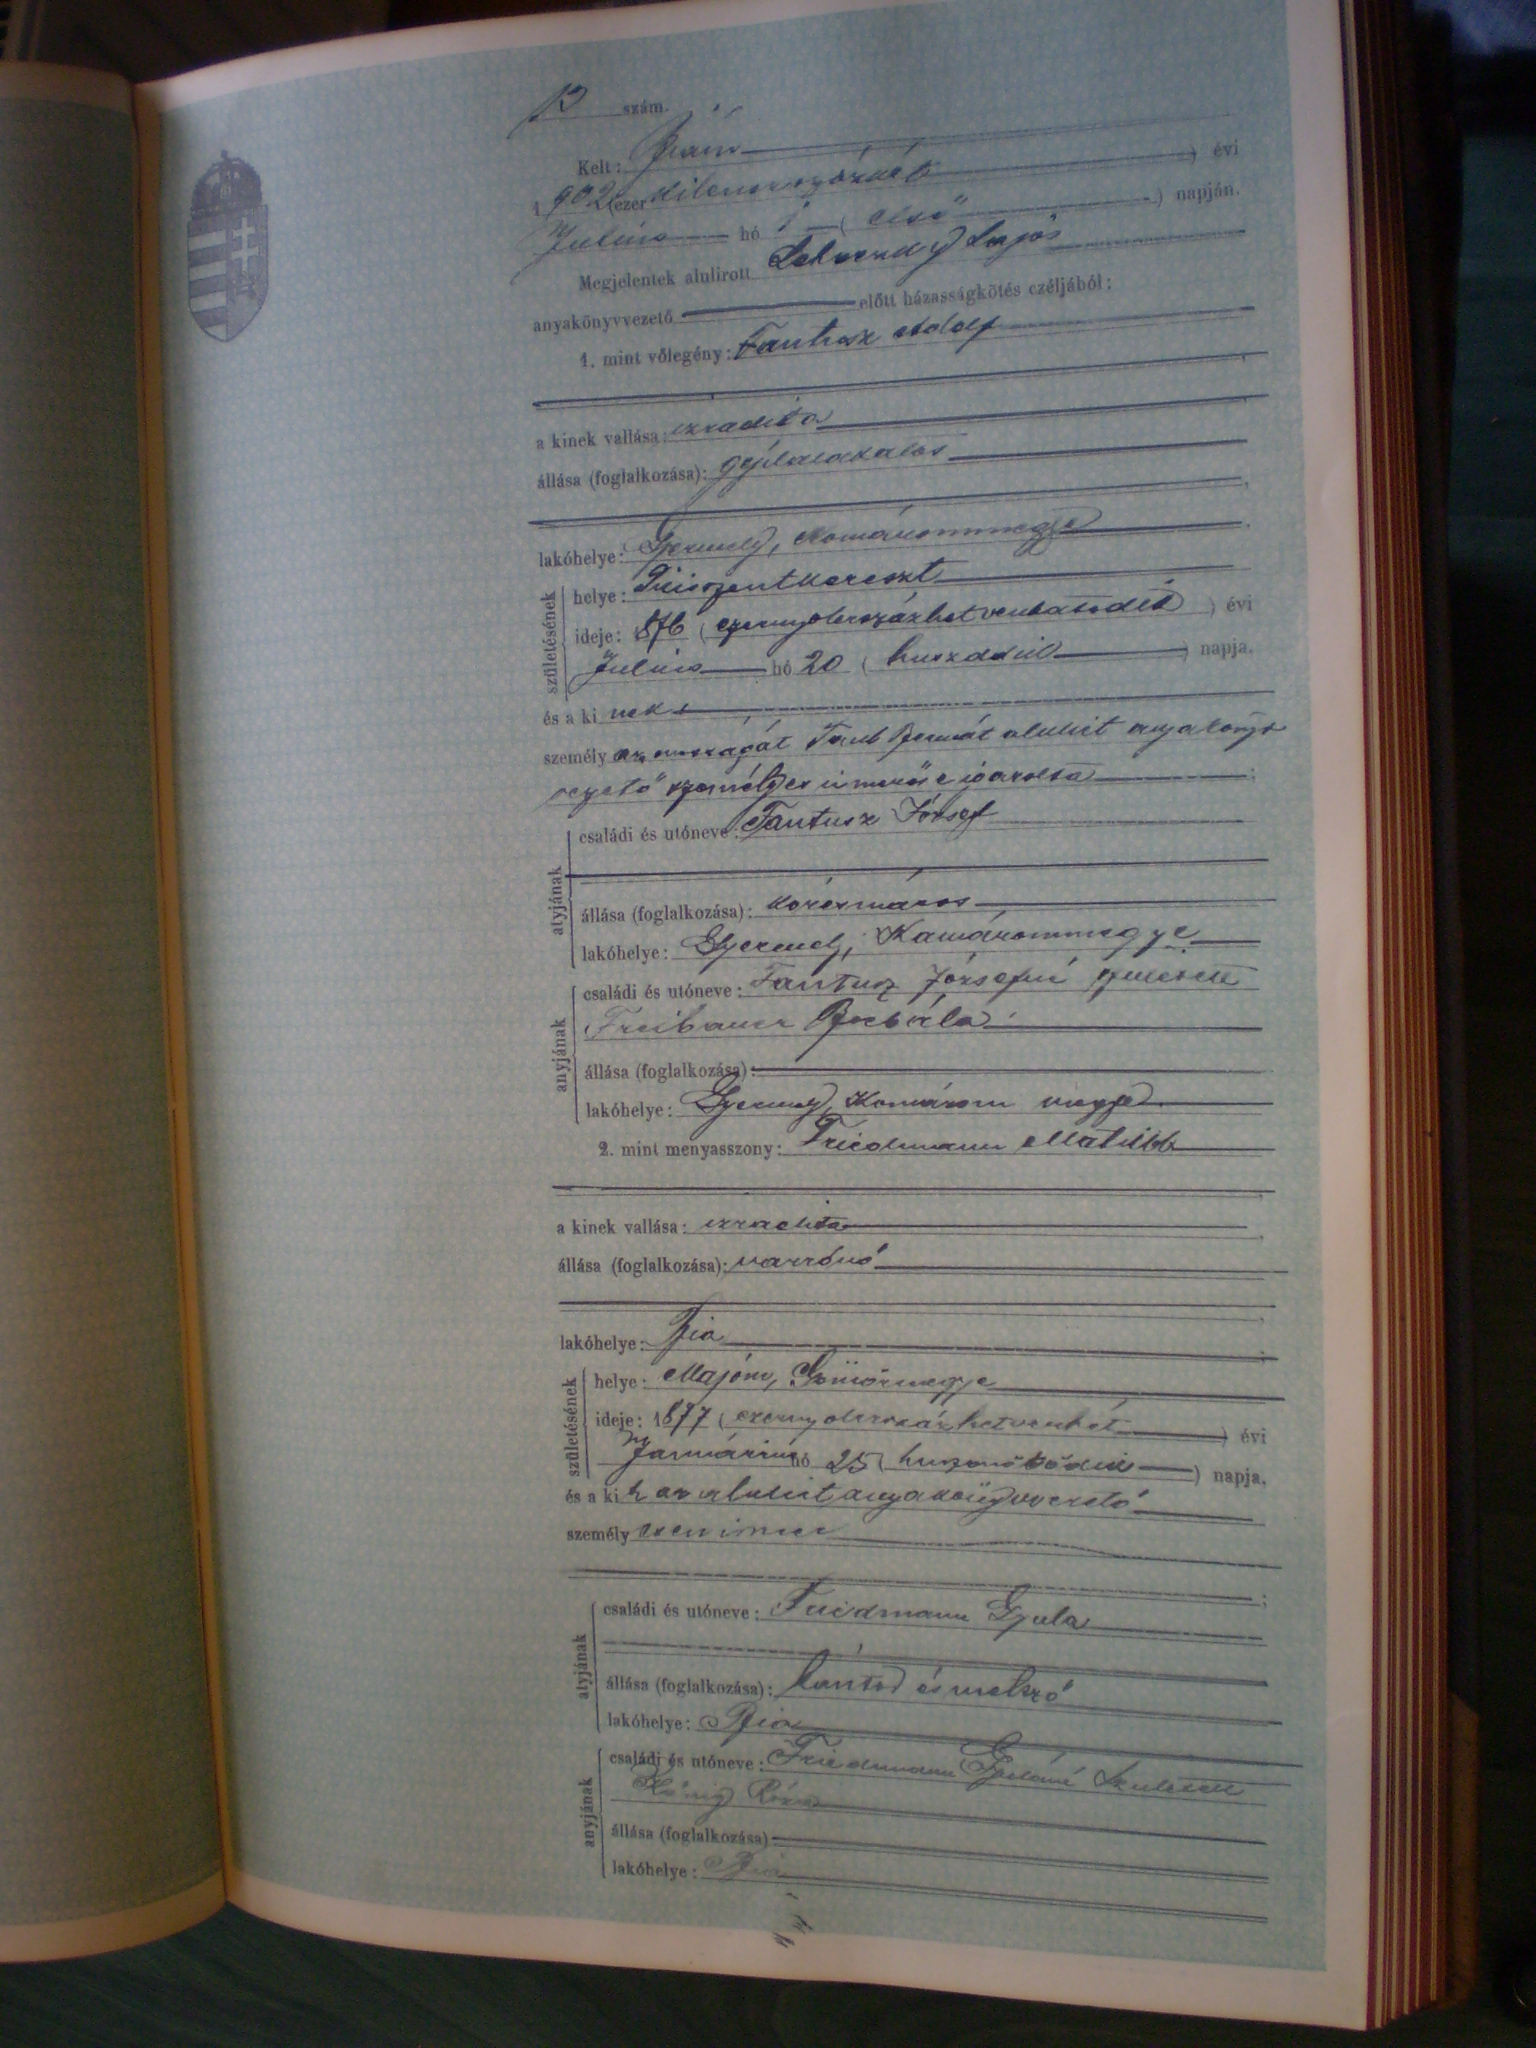 13 szám.
Kelt: Bián
1902 (ezer kilenczszázkét ) évi
Julius hó 1 ( első ) napján.
Megjelentek alulirott Lajos
anyakönyvvezető előtt házasságkötés czéljából:
1. mint vőlegény: Fantusz Adolf
a kinek vallása: izraelita
állása (foglalkozása): géplakatos
lakóhelye: Gyermely, Komárommegye
születésének
helye: Pilisszentkereszt
ideje: 1876 ( ezernyolczszázhetvenhatodik ) évi
Julius hó 20 ( huszadik ) napja.
és a ki nek
személy azonosságát Taub Bernát alulirt anyakönyv
vezető személyes ismerőse igazolta ;
atyjának
családi és utóneve: Fantusz József
állása (foglalkozása): korcsmáros
lakóhelye: Gyermely, Komárommegye
anyjának
családi és utóneve: Fantusz Józsefné született
Freibauer Borbála
állása (foglalkozása):
lakóhelye: Gyermely, Komárom megye
2. mint menyasszony: Friedmann Matild
a kinek vallása: izraelita
állása (foglalkozása): varrónő
lakóhelye: Bia
születésének
helye: Majom, Gömörmegye
ideje: 1877 ( ezernyolczszázhetvenhét ) évi
Januárius hó 25 ( huszonötödik ) napja,
és a ki t az alulirt anyakönyvvezető
személy esen ismer
atyjának
családi és utóneve: Friedmann Gyula
állása (foglalkozása): kántor és metsző
lakóhelye: Bia
anyjának
családi és utóneve: Friedmann Gyuláné született
König Róza
állása (foglalkozása)
lakóhelye: Bia